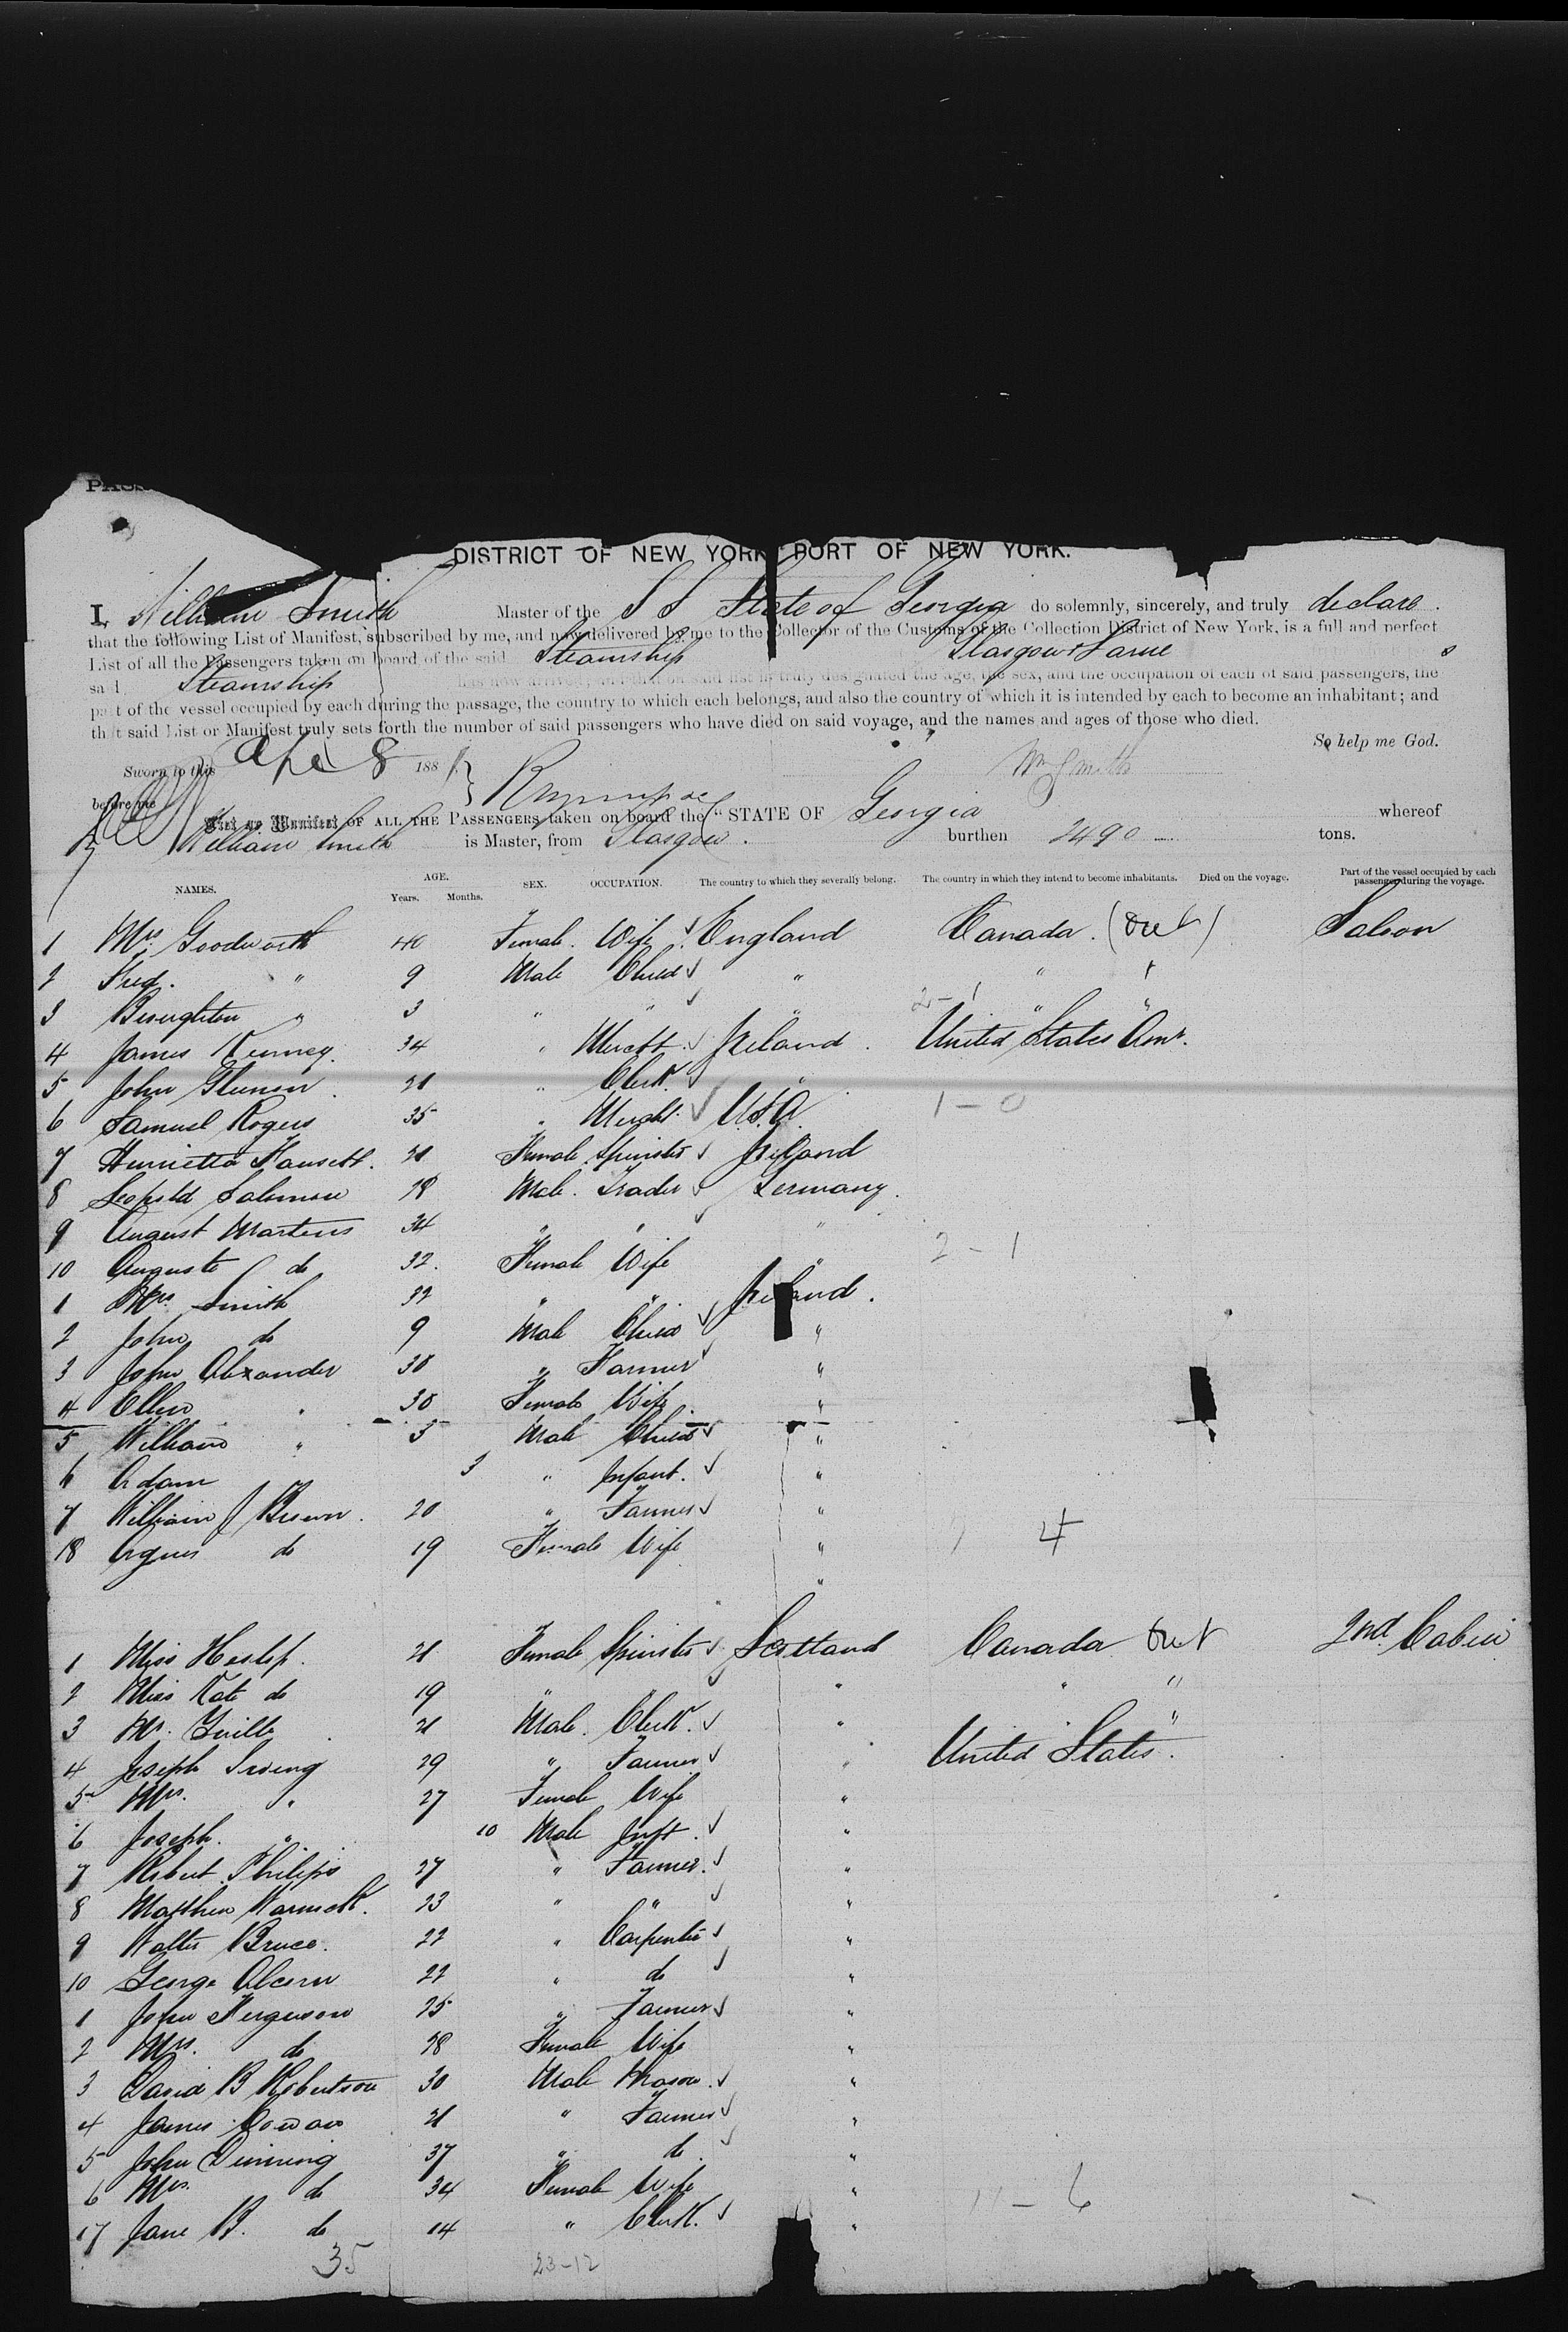 DISTRICT OF NEW YORK PORT OF NEW YORK.
I, William Smith Master of the S S State of Georgia do solemnly, sincerely, and truly declare.
that the following List of Manifest, subscribed by me, and now delivered by me to the Collector of the Customs of the Collection District of New York, is a full and perfect
List of all the Passengers taken on board of the said Steamship Glasgow & Larne
said Steamship has now arrived; and that on said list is truly designated the age, the sex, and the occupation of each of said passengers, the
part of the vessel occupied by each during the passage, the country to which each belongs, and also the country of which it is intended by each to become an inhabitant; and
that said List or Manifest truly sets forth the number of said passengers who have died on said voyage, and the names and ages of those who died.
So help me God.
Sworn to this Apl 8 188
Wm Smith
before me
List or Manifest OF ALL THE PASSENGERS taken on board the "STATE OF Georgia whereof
William Smith is Master, from Glasgow. burthen 2490 tons.
NAMES. AGE. Years. Months. SEX. OCCUPATION. The country to which they severally belong. The country in which they intend to become inhabitants. Died on the voyage. Part of the vessel occupied by each passenger during the voyage.
1 Mrs. Goodworth 40 Female. Wife England Canada. (Out) Saloon
2 Fred. " 9 Male Child " "
3 " 3 " " " " "
4 James Kenney. 34 " Mercht. Ireland. United States Amr.
5 John 21 " Clerk "
6 Samuel Rogers 35 " Mercht. U.S.A. 1 - 0
7 Henrietta 21 Female Spinster Ireland
8 Leopold Salomon 28 Male. Trader Germany.
9 August Martens 34 " " "
10 Auguste do 32. Female Wife " 2 - 1
1 Mrs Smith 32 " " Ireland.
2 John do 9 Male Child "
3 John Alexander 38 " Farmer "
4 Ellen " 38 Female Wife "
5 William " 3 Male Child "
6 Adam 3 " Infant. "
7 William J Brown. 20 " Farmer "
18 Agnes do 19 Female Wife " 4
1 Miss Heslop. 21 Female Spinster Scotland Canada Out 2nd. Cabin
2 Miss Kate do 19 " " " " "
3 Mr. 21 Male. Clerk. " " "
4 Joseph Irving 29 " Farmer " United States.
5 Mrs. " 27 Female Wife "
6 Joseph. " 10 Male Inft. "
7 Robert Philips 27 " Farmer. "
8 Matthew Warnock. 23 " " "
9 Walter Bruce. 22 " Carpenter "
10 George Alcorn 22 " do "
1 John Ferguson 25 " Farmer "
2 Mrs. do 28 Female Wife "
3 David B Robertson 30 Male Mason. "
4 James Cowan 21 " Farmer "
5 John Dinning 37 " do "
6 Mrs. do 34 Female Wife " 11 - 6
17 Jane B. do 14 " Clerk. "
35 23-12